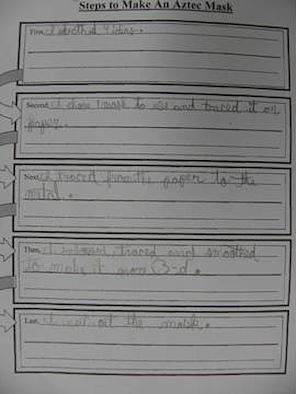 Steps to Make An Aztec Mask
First, I sketched 4 ideas.
Second, I chose 1 mask to use and traced it on
paper.
Next, I traced from the paper to the
metal.
Then, I traced and smoothed
to make it more 3-d.
Last, I cut out the mask.